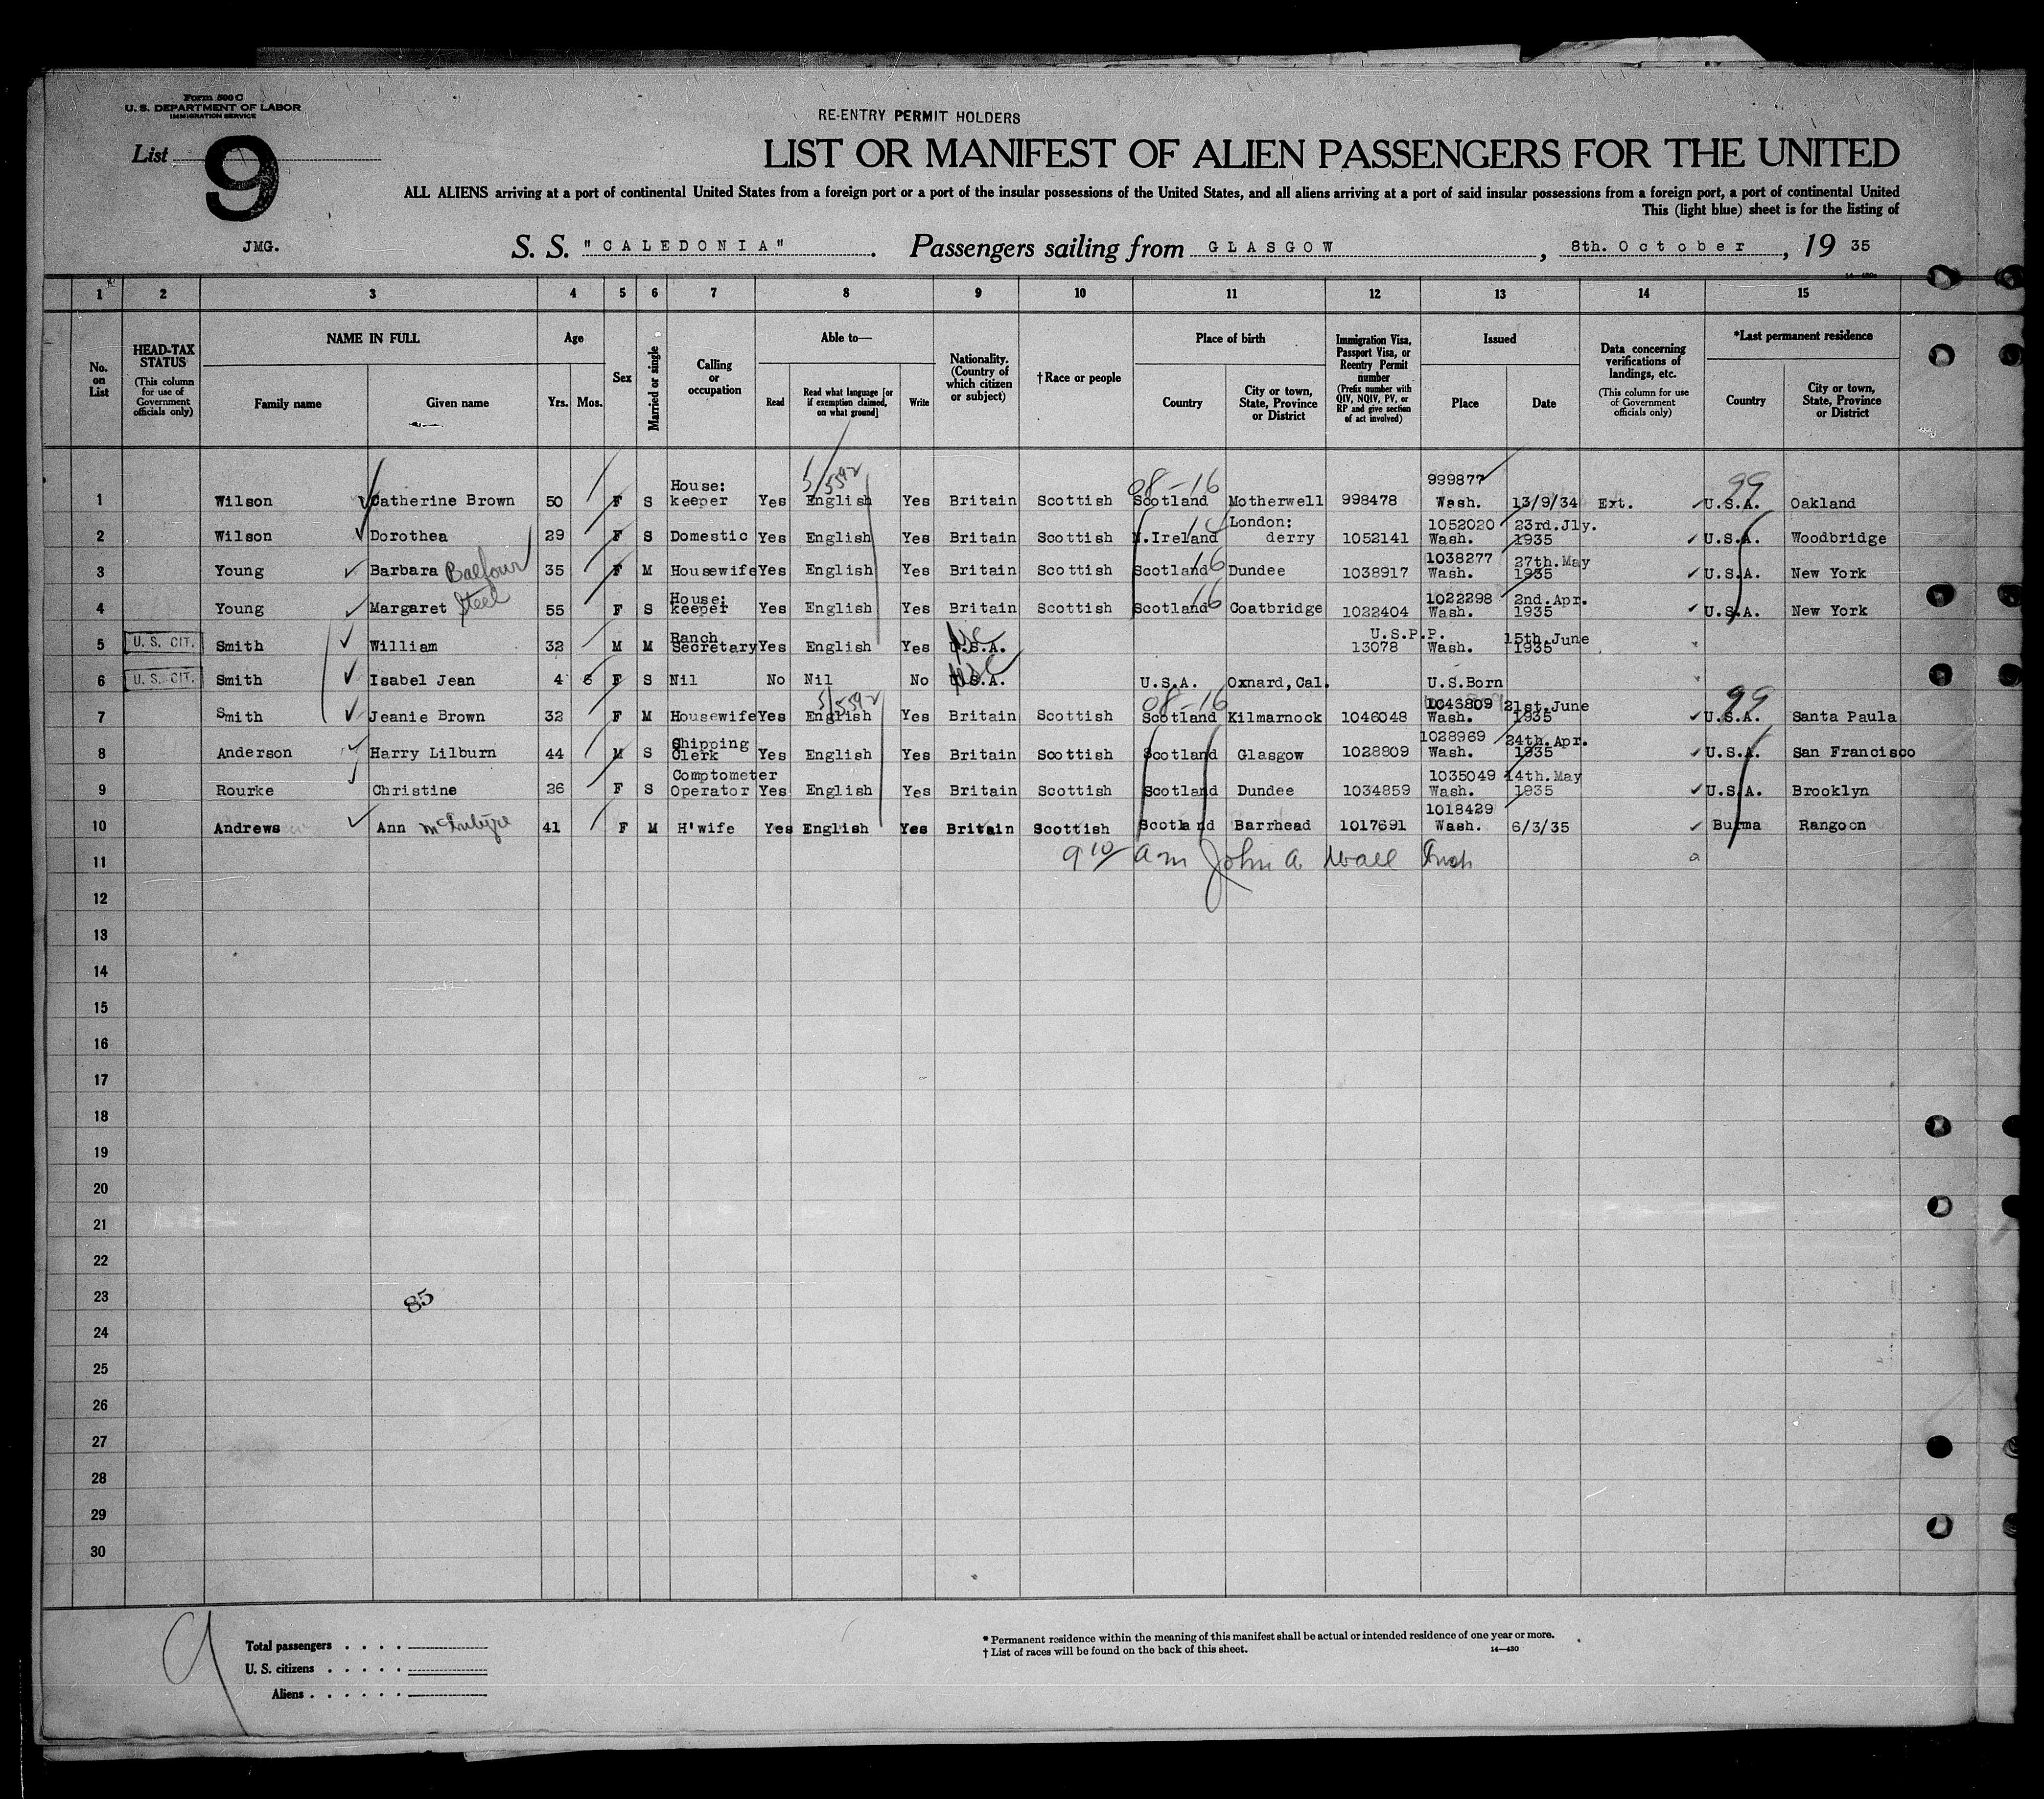 Form 500 C
U. S. DEPARTMENT OF LABOR
IMMIGRATION SERVICE
RE-ENTRY PERMIT HOLDERS
List 9
LIST OR MANIFEST OF ALIEN PASSENGERS FOR THE UNITED
ALL ALIENS arriving at a port of continental United States from a foreign port or a port of the insular possessions of the United States, and all aliens arriving at a port of said insular possessions from a foreign port, a port of continental United
This (light blue) sheet is for the listing of
JMG. S. S. "CALEDONIA". Passengers sailing from GLASGOW, 8th. October, 19 35
1 2 3 4 5 6 7 8 9 10 11 12 13 14 15
No. on List
HEAD-TAX STATUS (This column for use of Government officials only)
NAME IN FULL
Family name Given name
Age
Yrs. Mos.
Sex
Married or single
Calling or occupation
Able to—
Read Read what language [or if exemption claimed, on what ground] Write
Nationality. (Country of which citizen or subject)
†Race or people
Place of birth
Country City or town, State, Province or District
Immigration Visa, Passport Visa, or Reentry Permit number (Prefix number with QIV, NQIV, PV, or RP and give section of act involved)
Issued
Place Date
Data concerning verifications of landings, etc. (This column for use of Government officials only)
*Last permanent residence
Country City or town, State, Province or District
08-16 99
1 Wilson Catherine Brown 50 F S House: keeper Yes English Yes Britain Scottish Scotland Motherwell 998478 999877 Wash. 13/9/34 Ext. U.S.A. Oakland
2 Wilson Dorothea 29 F S Domestic Yes English Yes Britain Scottish N.Ireland London: derry 1052141 1052020 Wash. 23rd.Jly. 1935 U.S.A. Woodbridge
3 Young Barbara Balfour 35 F M Housewife Yes English Yes Britain Scottish Scotland 16 Dundee 1038917 1038277 Wash. 27th.May 1935 U.S.A. New York
4 Young Margaret Steel 55 F S House: keeper Yes English Yes Britain Scottish Scotland 16 Coatbridge 1022404 1022298 Wash. 2nd.Apr. 1935 U.S.A. New York
5 U. S. CIT. Smith William 32 M M Ranch Secretary Yes English Yes U.S.A. U.S.P.P. 13078 Wash. 15th.June 1935
6 U. S. CIT. Smith Isabel Jean 4 6 F S Nil No Nil No U.S.A. U.S.A. Oxnard, Cal. U.S.Born
08-16 99
7 Smith Jeanie Brown 32 F M Housewife Yes English Yes Britain Scottish Scotland Kilmarnock 1046048 1043809 Wash. 21st.June 1935 U.S.A. Santa Paula
8 Anderson Harry Lilburn 44 M S Shipping Clerk Yes English Yes Britain Scottish Scotland Glasgow 1028809 1028969 Wash. 24th.Apr. 1935 U.S.A. San Francisco
9 Rourke Christine 26 F S Comptometer Operator Yes English Yes Britain Scottish Scotland Dundee 1034859 1035049 Wash. 14th.May 1935 U.S.A. Brooklyn
10 Andrews Ann McIntyre 41 F M H'wife Yes English Yes Britain Scottish Scotland Barrhead 1017691 1018429 Wash. 6/3/35 Burma Rangoon
11 9 10 am John A. Wall
12
13
14
15
16
17
18
19
20
21
22
23 85
24
25
26
27
28
29
30
9
Total passengers . . . .
U. S. citizens . . . . .
Aliens . . . . . .
* Permanent residence within the meaning of this manifest shall be actual or intended residence of one year or more.
† List of races will be found on the back of this sheet. 14—430